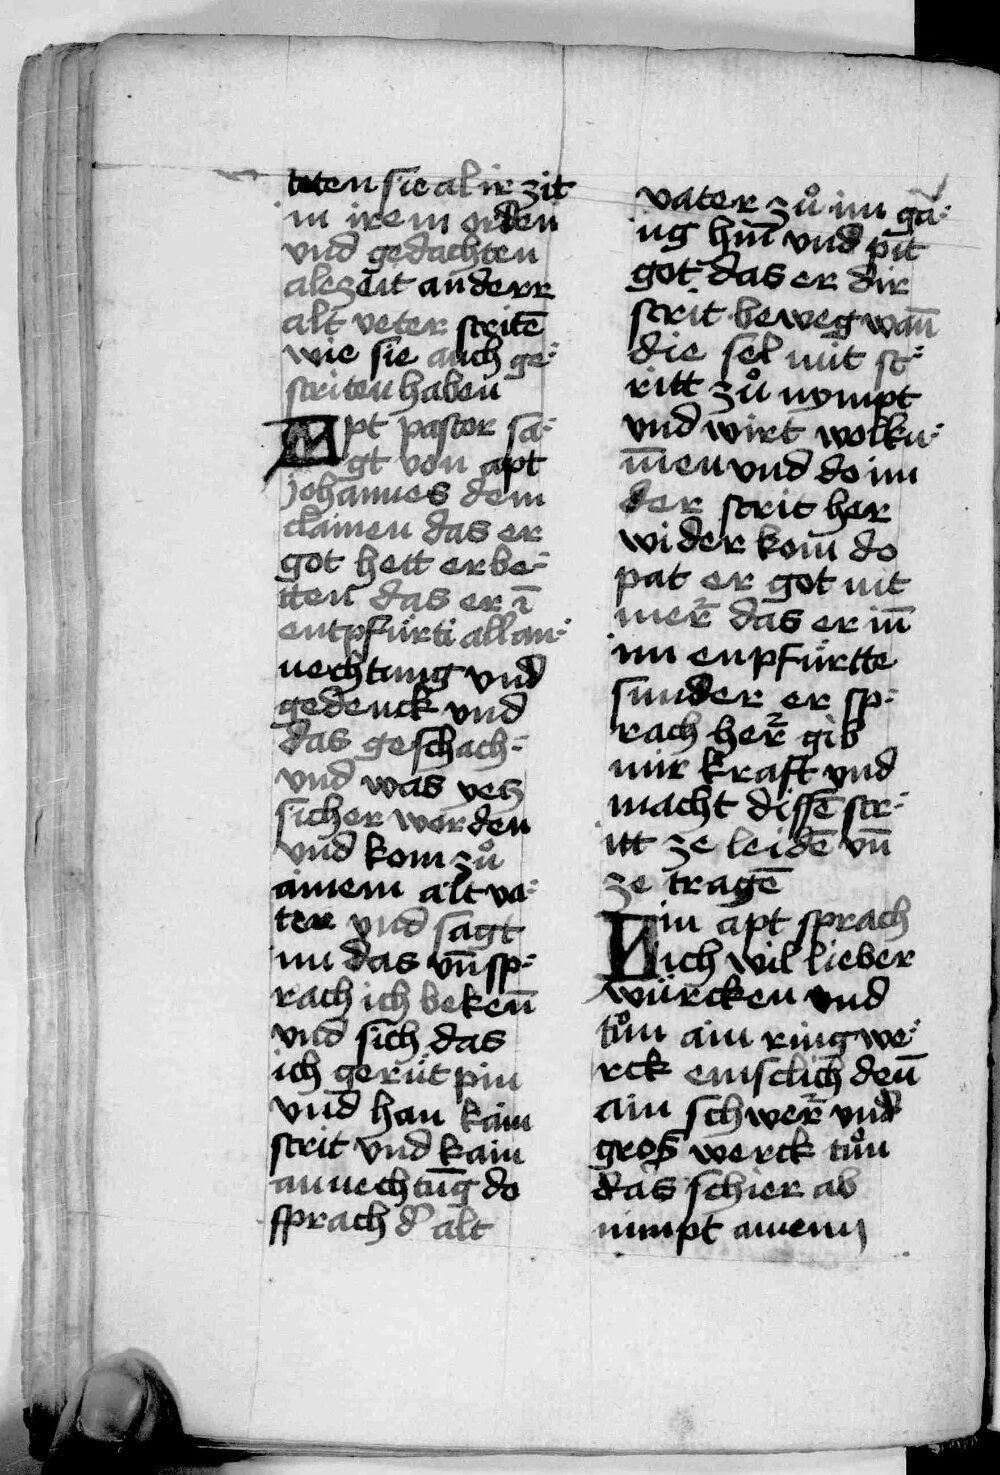 teten sie al ir zit
in irem orden
und gedachten
alezeit an derr
alt veter scritē
wie sie auch ge⸗
scriten haben
Apt pastor sa⸗
gt von apt
johannes dem
clainen das er
got hett erbe⸗
tten das er ī
entpfürti all an⸗
vechtung vnd
gedenck vnd
das geschach⸗
vnd was yetz
sicher worden
vnd kom zů
ainem alt va⸗
ter vnd sagt
im das vn̄ sp⸗
rach ich beken̄
vnd sich das
ich gerüt pin
vnd han kain
scrit vnd kain
anvechtūg do
sprach d' alt
vater zů im ga⸗
ng hin̄ vnd pit
got das er dir
scrit beweg wan̄
die sel mit sc⸗
ritt zů nympt
vnd wirt wolku⸗
m̄en vnd do im
der scrit her
wider kom do
pat er got nit
mer̄ das er in̄
im enpfürtte
sunder er sp⸗
rach her̄ gib
mir kraft vnd
macht dissē scr⸗
itt ze leidē vn̄
ze tragē
Ein apt sprach
ich wil lieber
würcken vnd
tůn ain ring we⸗
rck emsclich den̄
ain schwer̄ vnd
gros werck tůn
das schier ab
nimpt amenn